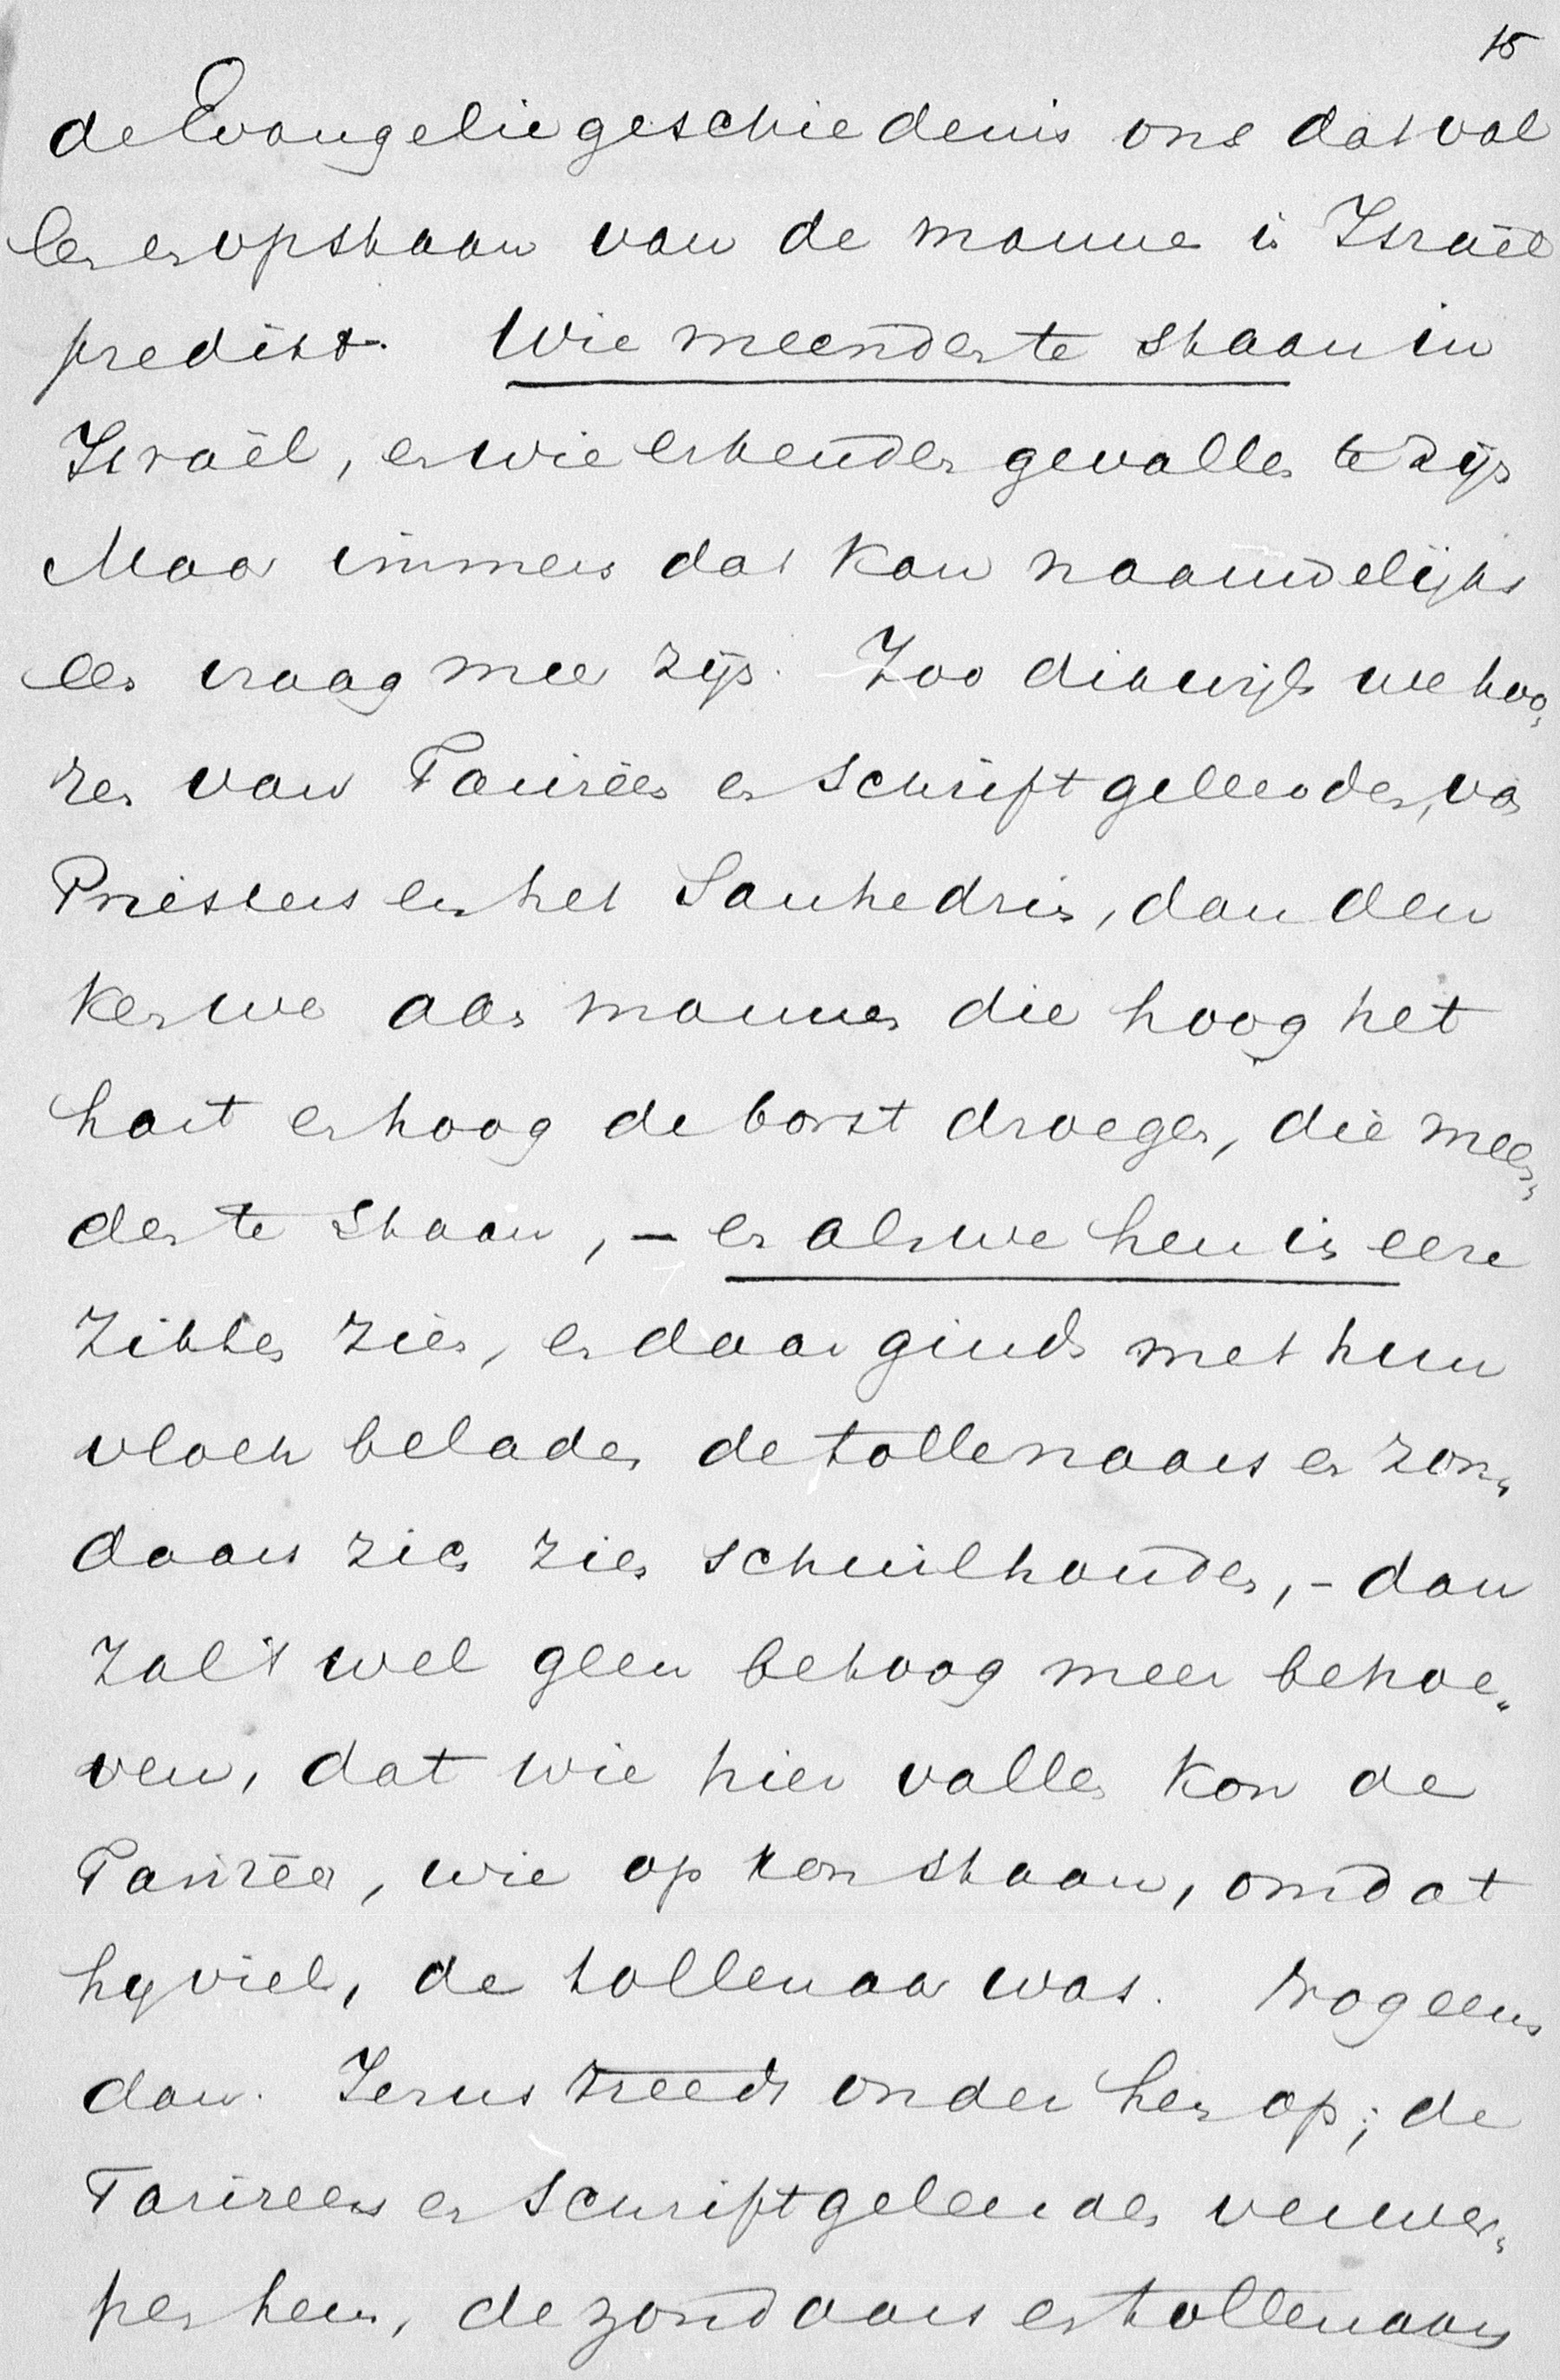 15
de Evangeliegeschiedenis ons dat val
len en opstaan van de mannen in Israël
predikt. Wie meenden te staan in
Israël, en wie erkenden gevallen te zijn
Maar immers dat kan naauwelijks
een vraag meer zijn. Zoo dikwijls we hoo„
ren van Farizeën en Schriftgeleerden, van
Priesters en het Sanhedrin, dan den
ken we aan mannen die hoog het
hart en hoog de borst droegen, die meen„
den te staan, – en als we hen in eere
zitten zien, en daar ginds met hun
vloek beladen de tollenaars en zon„
daars zien zien schuilhouden, – dan
zal 't wel geen betoog meer behoe„
ven, dat wie hier vallen kon de
Farizeër, wie op kon staan, omdat
hy viel, de tollenaar was. Nog eens
dan. Jezus treedt onder hen op; de
Farizeën en Schriftgeleerden verwer„
pen hem, de zondaars en tollenaars